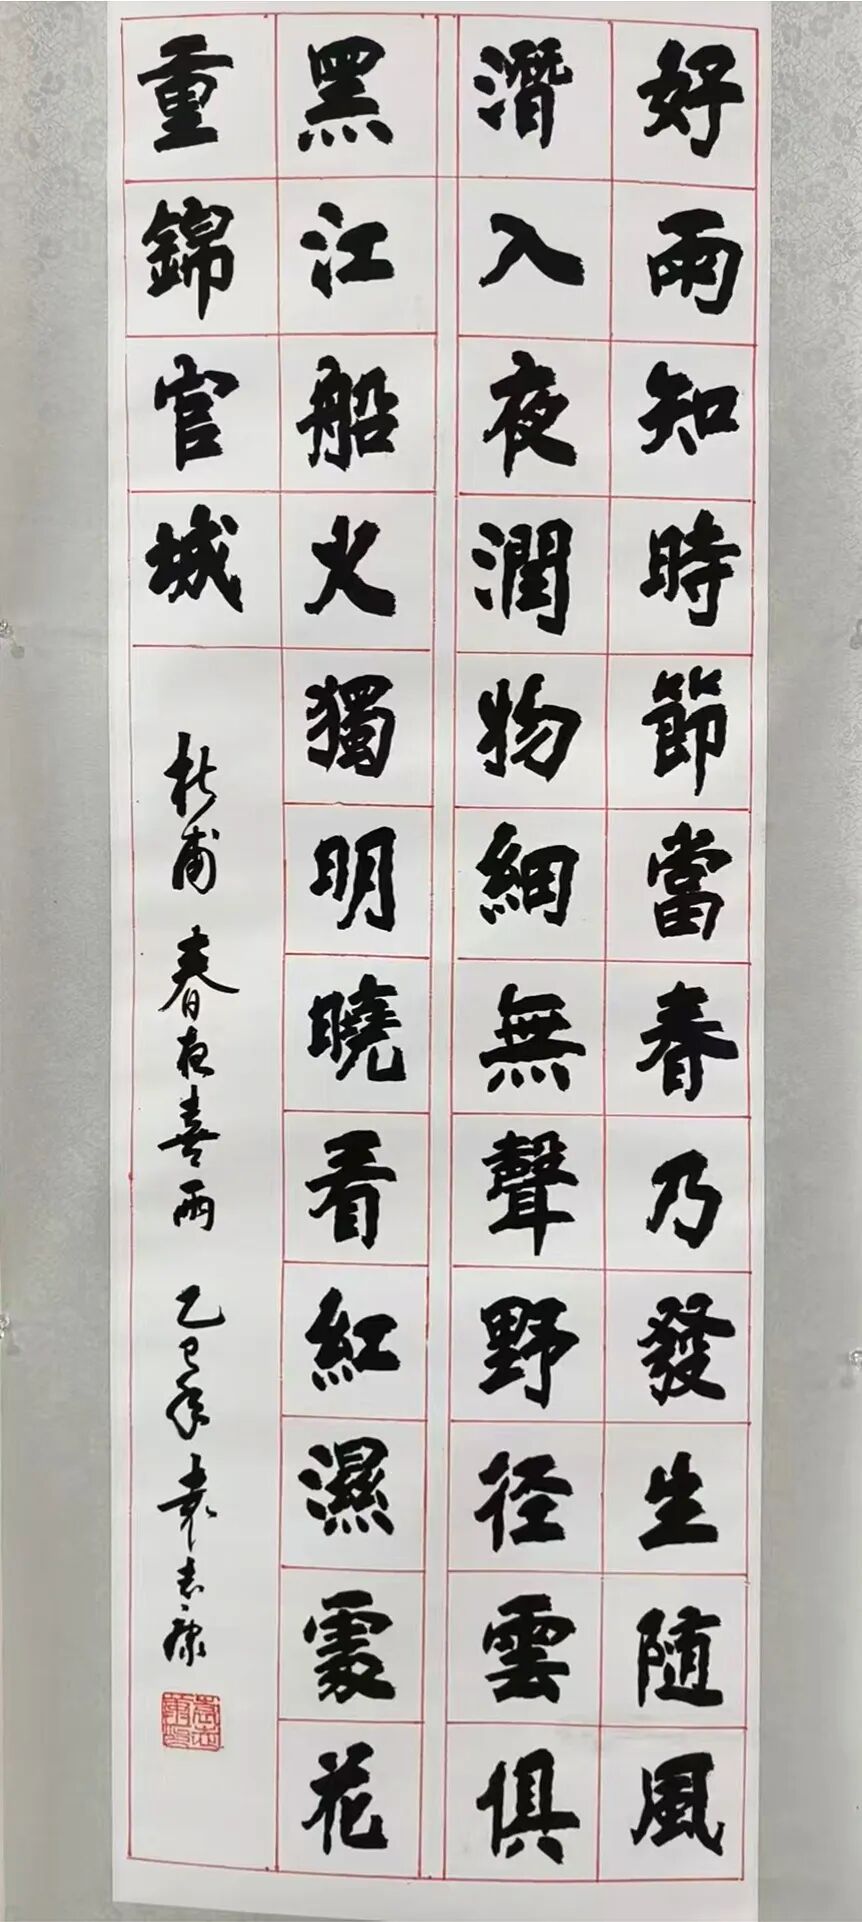 好雨知時節當春乃發生随風
潛入夜潤物細無聲野径雲俱
黑江船火獨明曉看紅濕處花
重錦官城
杜甫 春夜喜雨 乙巳年 袁志康